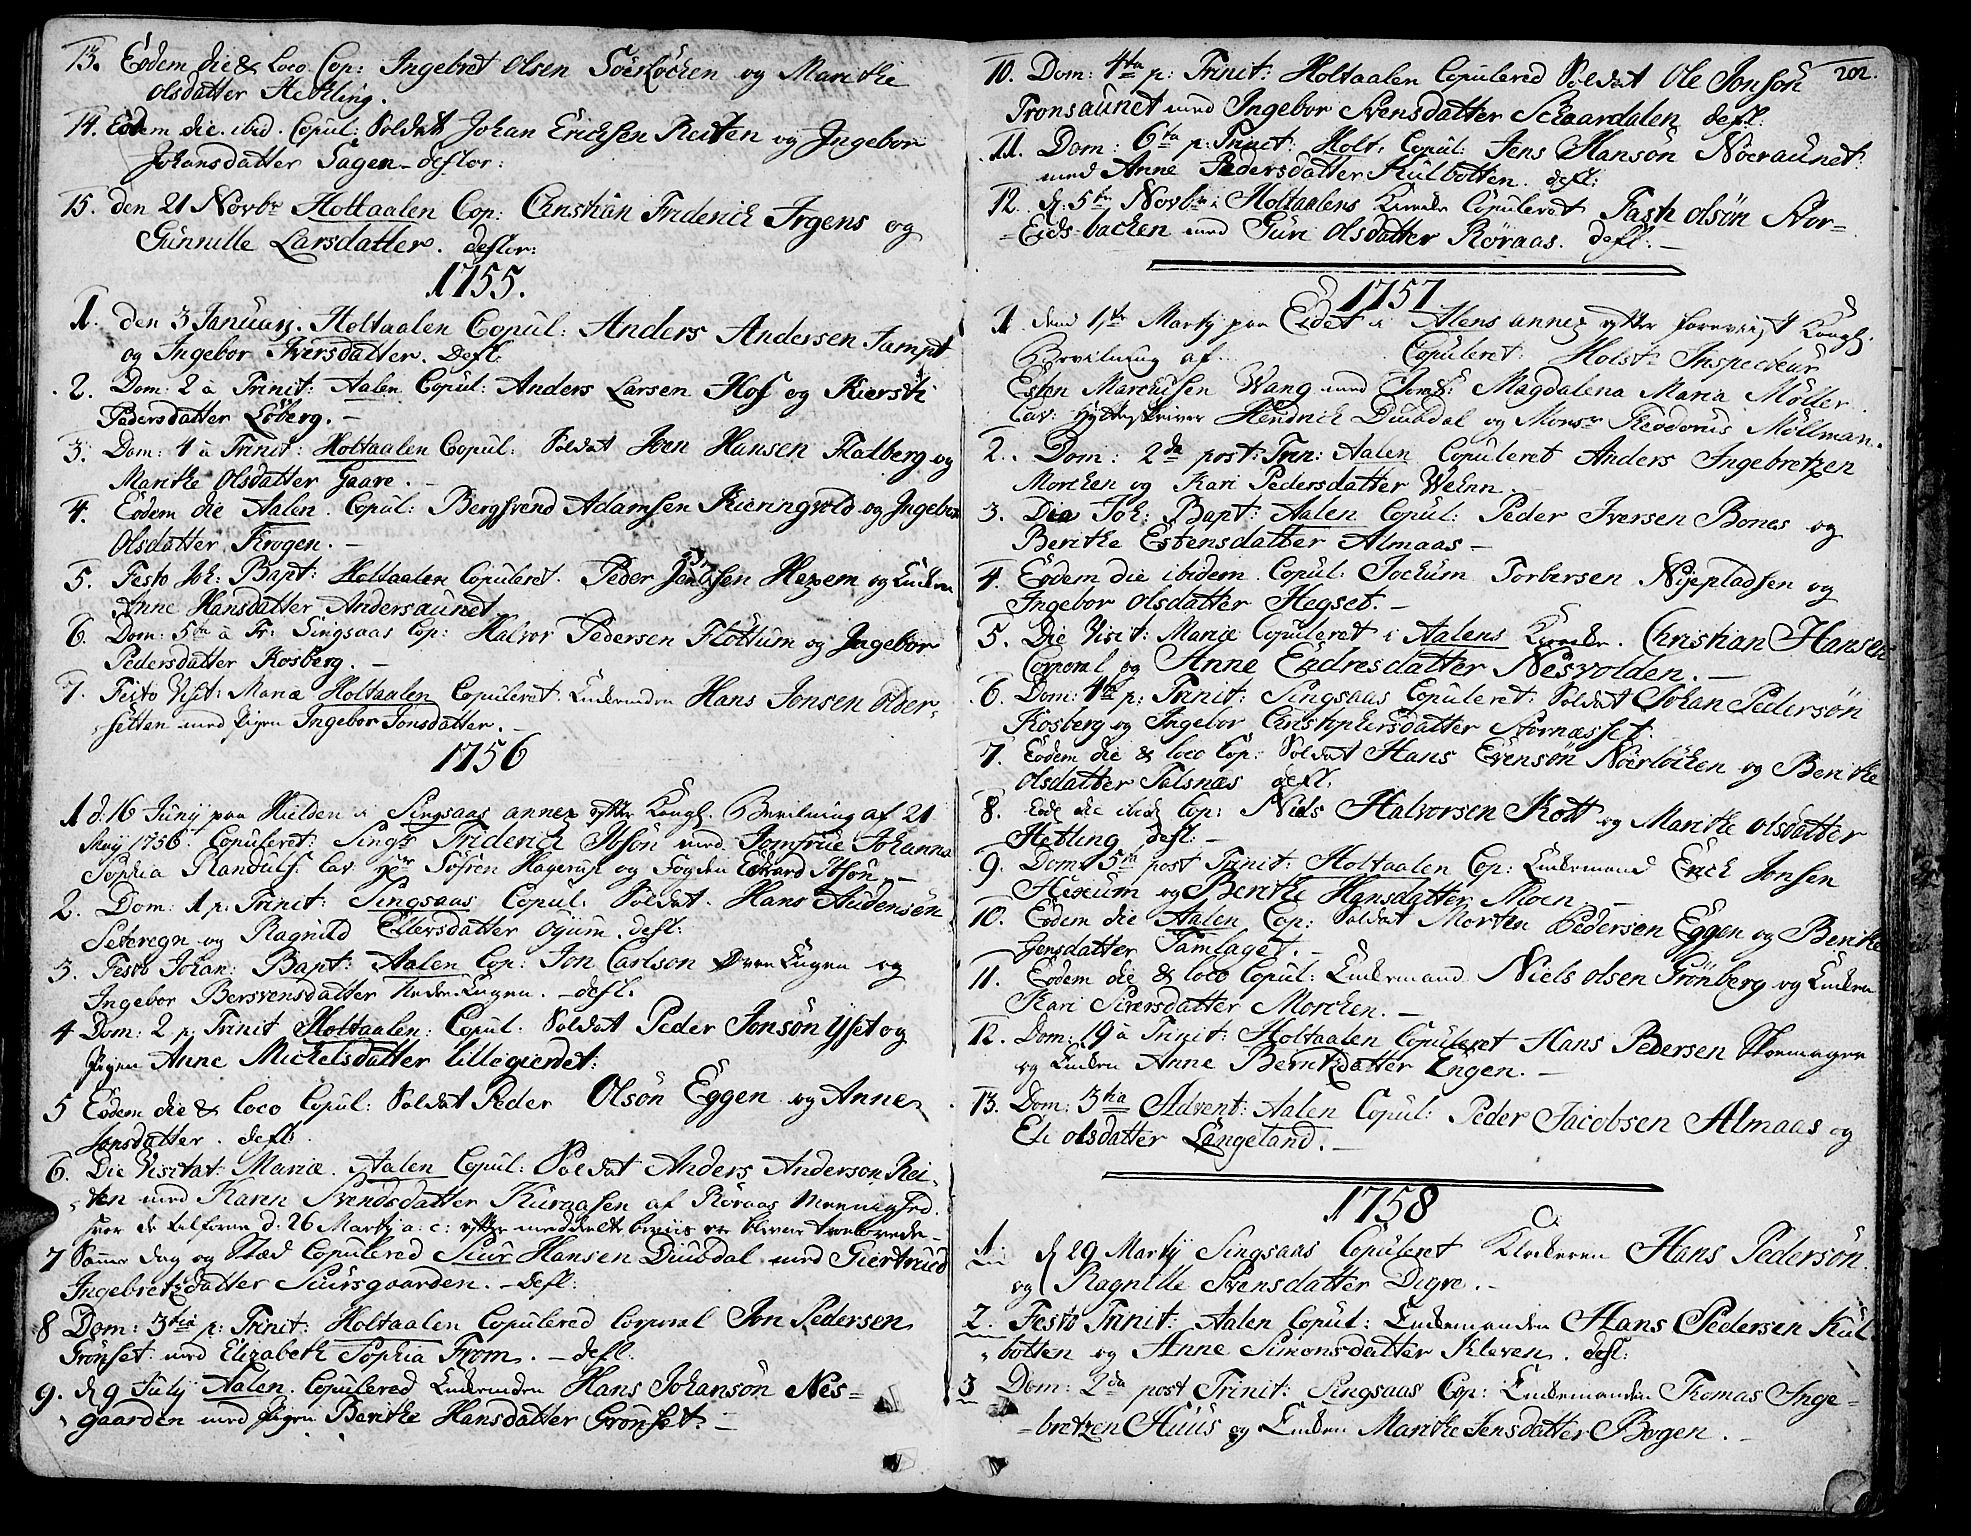 13. Eodem die & loco Cop: Ingebret Olsen Söerlöcken og Marithe
Olsdatter Hetling.
14. Eodem die ibid. Copul: Soldat Johan Erichsen Reiten og Ingebor
Johansdatter Sagen - deflor:
15. den 21 Novbr Holtaalen Cop: Christian Friderich Irgens og
Gunnille Larsdatter. deflor:
1755.
1. den 3 Januarj. Holtaalen Copul: Anders Andersen Jampt
og Ingebor Iversdatter. Defl.
2. Dom: 2 à Trinit: Aalen Copul: Anders Larsen Hof og Kiersti
Pedersdatter Löberg. -
3. Dom: 4 à Trinit: Holtaalen Copul: Soldat Joen Hansen Flatberg og
Marithe Olsdatter Gaare. -
4. Eodem die Aalen. Copul: Bergsvend Adamsen Kierringvold og Ingebor
Olsdatter Krogen. -
5. Festo Joh: Bapt: Holtaalen Copuleret. Peder Jensen Hexem og Enken
Anne Hansdatter Andersaunet
6. Dom: 5ta à Tr: Singsaas Cop: Halvor Pedersen Flöttum og Ingebor
Pedersdatter Kosberg. -
7. Festo Visit: Mariæ Holtaalen Copuleret. Enkemden Hans Jonsen Older-
setten med Pigen Ingebor Jonsdatter. -
1756
1 d: 16 Junij paa Kulden i Singsaas annex efter Kongl. Bevilning af 21
Maij 1756. Copuleret: Singr Friderich Ibsön med Jomfrue Johanna
Sophia Randulf. cav Hr Söfren Hagerup og Fogden Edvard Ibsön. -
2. Dom: 1 p: Trinit: Singsaas Copul: Soldat. Hans Audensön
Seteregn og Ragnild Ellersdatter Ogium. defl:
3. Festo Johan: Bapt: Aalen Cop: Jon Carlson Övre Engen og
Ingebor Bersvensdatter Nedre Engen. - defl.
4 Dom: 2 p: Trinit Holtaalen: Copul: Soldat Peder Jonsön Ysset og
Pigen Anne Michelsdatter Lillegierdet:
5 Eodem die & loco Copul: Soldat Peder Olsön Eggen og Anne
Jonsdatter. defl:
6. Die Visitat: Mariæ. Aalen Copul: Soldat Anders Anderson Rei-
ten med Karin Svendsdatter Kuraasen af Röraas Meenighed.
hvor de tilforne d: 26 Martij a: c: efter meddeelte beviis er blevne trolovede -
7 Samme dag og Stæd Copulered Siur Hansen Duudal med Giertrud
Ingebretzdatter Siursgaarden. - Defl:
8 Dom: 3tia p: Trinit: Holtaalen Copulered Corporal Jon Pedersen
Grönset med Elizabeth Sophia From. - defl:
9. d 9 Julij Aalen. Copulered Enkemden Hans Johansön Nes-
gaarden med Pigen Berithe Hansdatter Grönset. -
202.
10. Dom: 4ta p: Trinit: Holtaalen Copulered Soldat Ole Jonsön
Tronsaunet med Ingebor Svensdatter Schaardalen defl:
11. Dom: 6ta p: Trinit: Holt: Copul: Jens Hansön Noeraunet
med Anne Pedersdatter Kulbotten. defl:
12. d: 5te Novbr i Holtaalens Kirke Copuleret Fast Olsön Nor-
Eids-backen med Guri Olsdatter Röraas. defl: -
1757
1 dend 1ste Martij paa Eidet i Alens annex efter foreviist Kongl.
Bevilning af Copuleret: Holst: Inspecteur
Esten Marchusen Wang med Jomf: Magdalena Maria Möller
Cav: Hytteskriver Hendrich Duudal og Monsr Theodorus Möllman.
2. Dom: 2da post: Trin: Aalen Copuleret Anders Ingebretzen
Morchen og Kari Pedersdatter Wehnn. -
3. Die Joh: Bapt: Aalen Copul: Peder Iversen Bones og
Berithe Estensdatter Almaas -
4. Eodem die ibidem Copul: Jochum Torbersen Nyepladsen og
Ingebor Olsdatter Hegset. -
5. Die Visit: Mariæ Copuleret i Aalens Kirke. Christian Hansen
Corporal og Anne Endresdatter Nesvolden. -
6. Dom: 4ta p: Trinit: Singsaas Copuleret: Soldat Johan Pedersön
Kosberg og Ingebor Christophersdatter Stornæsset.
7. Eodem die & loco Cop: Soldat Hans Evensön Noerlöcken og Berithe
Olsdatter Talsnæs defl:
8. Eod: die ibid: Cop: Niels Halvorsen Kott og Marithe Olsdatter
Hetling defl: -
9. Dom: 5ta post Trinit: Holtaalen Cop: Enkemand Erich Jonsen
Hexum og Berithe Hansdatter Moen. -
10. Eodem die Aalen Cop: Soldat Morten Pedersen Eggen og Berithe
Jensdatter Tamlaget. -
11. Eodem die & loco Copul: Enkemand Niels Olsen Grönberg og Enken
Kari Siversdatter Morchen. -
12. Dom: 19 à Trinit: Holtaalen Copuleret Hans Pedersen Skomager
og Enken Anne Berntzdatter Engen. -
13. Dom: 3tia Advent: Aalen Copul: Peder Jacobsen Almaas og
Eli Olsdatter Langeland. -
1758
1. d 29 Martij Singsaas Copuleret Klokeren Hans Pedersön
og Ragnille Svensdatter Digre. -
2. Festo Trinit: Aalen Copul: Enkemanden Hans Pedersen Kul-
botten og Anne Simonsdatter Kleven. defl:
3 Dom: 2da post Trinit: Singsaas Cop: Enkemanden Thomas Inge-
bretzen Huus og Enken Marithe Jensdatter Bogen. -